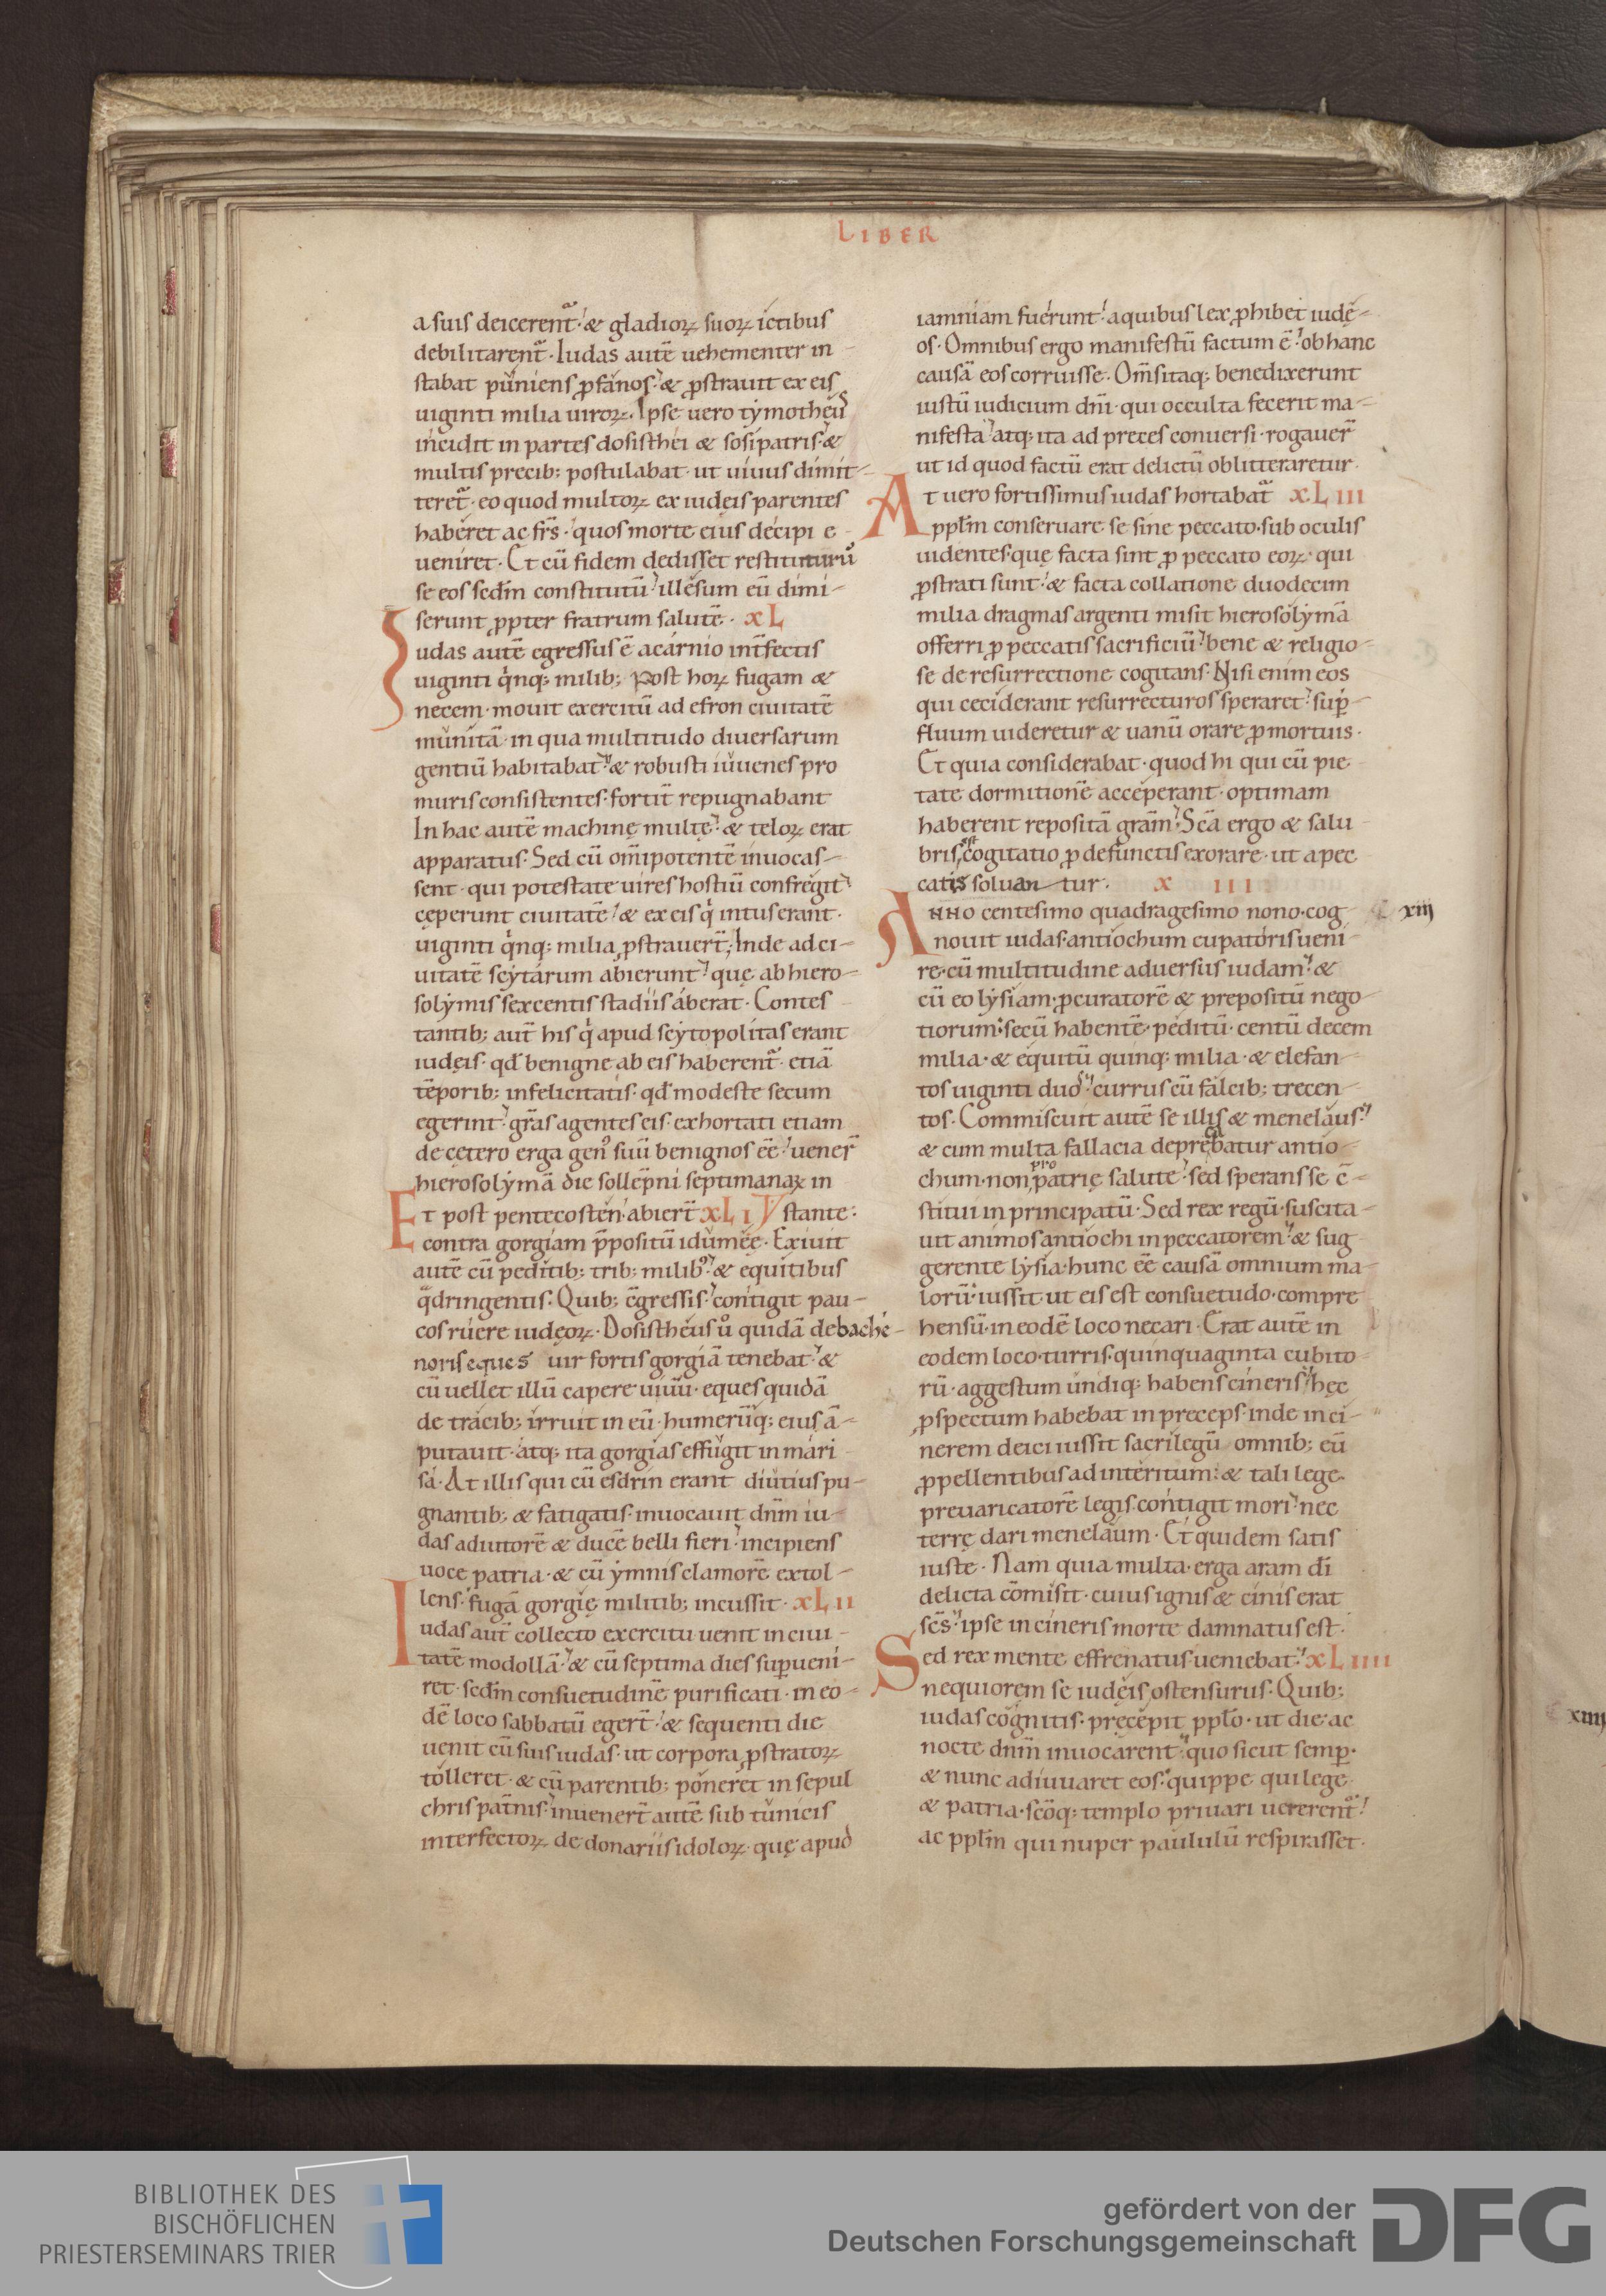 LIBER
a suis deicerent᷒ & gladioꝝ suoꝝ ictibus
debilitarent᷒. Iudas autē uehementer in
stabat puniens ꝓfanos. & ꝓstrauit ex eis
uiginti milia uiroꝝ. Ipse uero tymotheus
incidit in partes dosisthei & sosipatris. &
multis precib; postulabat. ut uiuus dimit-
teret᷒. eo quod multoꝝ ex iudeis parentes
haberet ac fr̄s. quos morte eius decipi e
ueniret. Et cū fidem dedisset restituturū
se eos sedm̄ constitutū. illesum eū dimi-
serunt ꝓpter fratrum salutē. XL
Iudas autē egressus ē acarnio int̄fectis
uiginti qͥnq; milib; Post hoꝝ fugam &
necem. mouit exercitū ad efron ciuitatē
munitā. in qua multitudo diuersarum
gentiū habitabat. & robusti iuuenes pro
muris consistentes. fortit̄ repugnabant
In hac autē machinę multę. & teloꝝ erat
apparatus. Sed cū om̄ipotentē inuocas-
sent. qui potestate uires hostiū confregit
cęperunt ciuitatē. & ex eis qͥ intus erant.
uiginti qͥnq; milia ꝓstrauer̄t; Inde ad ci-
uitatē scytarum abierunt. quę ab hiero-
solymis sexcentis stadiis aberat. Contes
tantib; aut̄ his qͥ apud scytopolitas erant
iudęis. qd̄ benigne ab eis haberent᷒. etiā
tēporib; infelicitatis. qd̄ modeste secum
egerint. gr̄as agentes eis. exhortati etiam
de cętero erga gen᷒ suū benignos eē. uener̄
hierosolymā die sollēpni septimanaꝝ in
Et post pentecosten. abier̄t XLI stante:
contra gorgiam p̄positū idumęę. Exiuit
autē cū peditib; trib; milib᷒. & equitibus
qͣdringentis. Quib; ēgressis. contigit pau-
cos ruere iudęoꝝ. Dosistheus uͦ quidā de bache-
noris eques uir fortis gorgiā tenebat. &
cū uellet illū capere uiuū. eques quidā
de tracib; irruit in eū. humerūq; eius ā-
putauit. atq; ita gorgias effugit in mari
sa. At illis qui cū esdrin erant diutius pu-
gnantib; & fatigatis. inuocauit dnm̄ iu-
das adiutorē & ducē belli fieri. incipiens
uoce patria. & cū ymnis clamorē extol-
lens. fugā gorgię militib; incussit. XLII
Iudas aut̄ collecto exercitu uenit in ciui-
tatē modollā. & cū septima dies sup̄ueni-
ret. sedm̄ consuetudinē purificati. in eo-
dē loco sabbatū eger̄t. & sequenti die
uenit cū suis iudas. ut corpora ꝓstratoꝝ
tolleret. & cū parentib; poneret in sepul
chris pat̄nis. inuener̄t autē sub tunicis
interfectoꝝ de donariis idoloꝝ. quę apud
iamniam fuerunt. a quibus lex ꝓhibet iudē-
os. Omnibus ergo manifestū factum ē. ob hanc
causā eos corruisse. Om̄s itaq; benedixerunt
iustū iudicium dn̄i. qui occulta fecerit ma-
nifesta. atq; ita ad preces conuersi. rogauer̄
ut id quod factū erat delictū oblitteraretur.
At uero fortissimus iudas hortabat᷒ XLIII
ppłm conseruare se sine peccato. sub oculis
uidentes. quę facta sint ꝓ peccato eoꝝ. qui
ꝓstrati sunt. & facta collatione duodecim
milia dragmas argenti misit hierosolymā
offerri ꝓ peccatis sacrificiū. bene & religio-
se de resurrectione cogitans. Nisi enim eos
qui ceciderant resurrecturos speraret. sup̄-
fluum uideretur & uanū orare ꝓ mortuis.
Et quia considerabat. quod hi qui cū pie
tate dormitionē acceperant. optimam
haberent repositā grām. Sc̄a ergo & salu
bris est cogitatio ꝓ defunctis exorare. ut a pec
catis soluan tur. X III
Anno centesimo quadragesimo nono. cog- xiij
nouit iudas. antiochum eupatoris ueni-
re. cū multitudine aduersus iudam. &
cū eo lysiam. ꝓcuratorē & prepositū nego
tiorum. secū habentē. peditū. centū decem
milia. & equitū quinq; milia. & elefan-
tos uiginti duos. currus cū falcib; trecen-
tos. Commiscuit autē se illis & menelaus.
& cum multa fallacia deprecabatur antio-
chum. non pro patrię salute. sed sperans se c̄-
stitui in principatū. Sed rex regū. suscita-
uit animos antiochi in peccatorem. & sug
gerente lysia. hunc eē causā omnium ma-
lorū. iussit. ut eis est consuetudo. compre
hensū. in eodē loco necari. Erat autē in
eodem loco. turris. quinquaginta cubito
rū. aggestum undiq; habens cineris. hęc
ꝓspectum habebat in preceps. inde in ci-
nerem deici iussit sacrilegū omnib; eū
ꝓpellentibus ad interitum. & tali lege.
preuaricatorē legis. contigit mori. nec
terrę dari menelaum. Et quidem satis
iuste. Nam quia multa. erga aram dī
delicta cōmisit. cuius ignis & cinis erat
sc̄s. ipse in cineris morte damnatus est.
Sed rex mente effrenatus ueniebat. XLIIII
nequiorem se iudęis ostensurus. Quib;
iudas cognitis. pręcepit ppło. ut die. ac xiiij
nocte dnm̄ inuocarent. quo sicut semp̄.
& nunc adiuuaret eos. quippe qui lege
& patria. sc̄oq; templo priuari uererent᷒.
ac ppłm qui nuper paululū respirasset.
BIBLIOTHEK DES
BISCHÖFLICHEN
PRIESTERSEMINARS TRIER
gefördert von der
Deutschen Forschungsgemeinschaft
DFG